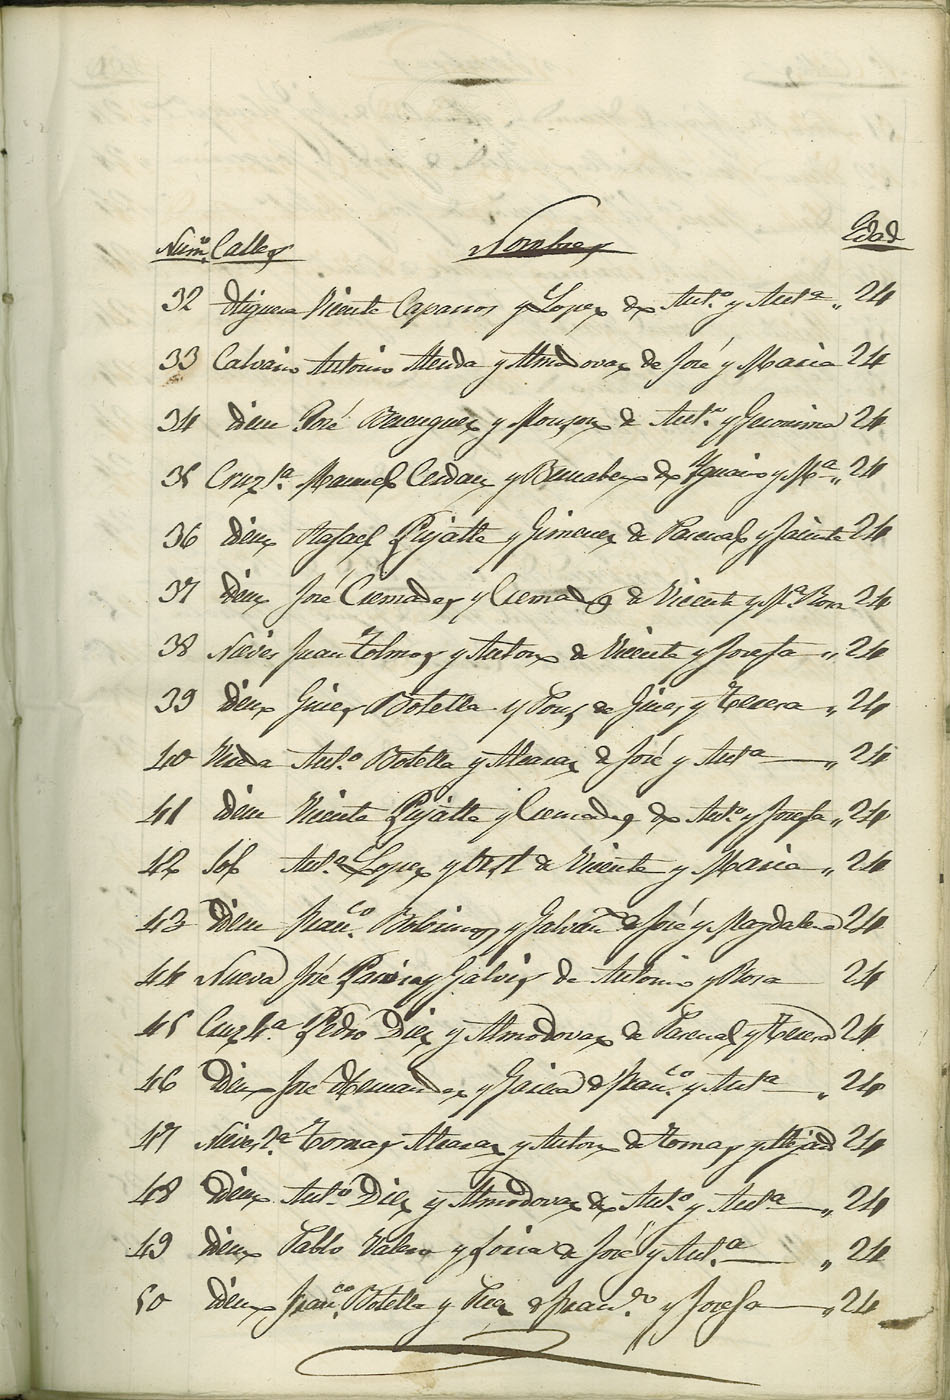 Num.º Calles Nombres Edad
32 Higuera Vicente Caparros y Lopez de Ant.º y Ant.ª „ 24
33 Calvario Antonio y Almodovar de José y Maria 24
34 Idem José Berenguer y Monzon de Ant.º y Geronima 24
35 Cruz 1.ª Manuel Cerdan y Bernabeu de Ignacio y M.ª „ 24
36 Idem Rafael Pujalte y Gimenez de Pascual y Jacinta 24
37 Idem José Cremades y Cremades de Vicente y M.ª Rosa 24
38 Nieves Juan Tolmos y Anton de Vicente y Josefa „ 24
39 Idem Gines Botella y Pons de Gines y Teresa „ 24
40 Ant.º Botella y Alcaraz de José y Ant.ª „ 24
41 Idem Vicente Pujalte y Cremades de Ant.º y Josefa „ 24
42 Sol Ant.º Lopez y de Vicente y Maria „ 24
43 Idem Fran.co y Galvañ de José y Magdalena 24
44 Nueva José y Galvis de Antonio y Rosa 24
45 Cruz 4.ª Pedro Diez y Almodovar de Pascual y Teresa 24
46 Idem José Hernandez y Garcia de Fran.co y Ant.ª „ 24
47 Nieves 2.ª Tomas Alcaraz y Anton de Tomas y 24
48 Idem Ant.º Diez y Almodovar de Ant.º y Ant.ª „ 24
49 Idem Pablo Valero y Soria de José y Ant.ª „ 24
50 Idem Fran.co Botella y de Fran.co y Josefa „ 24